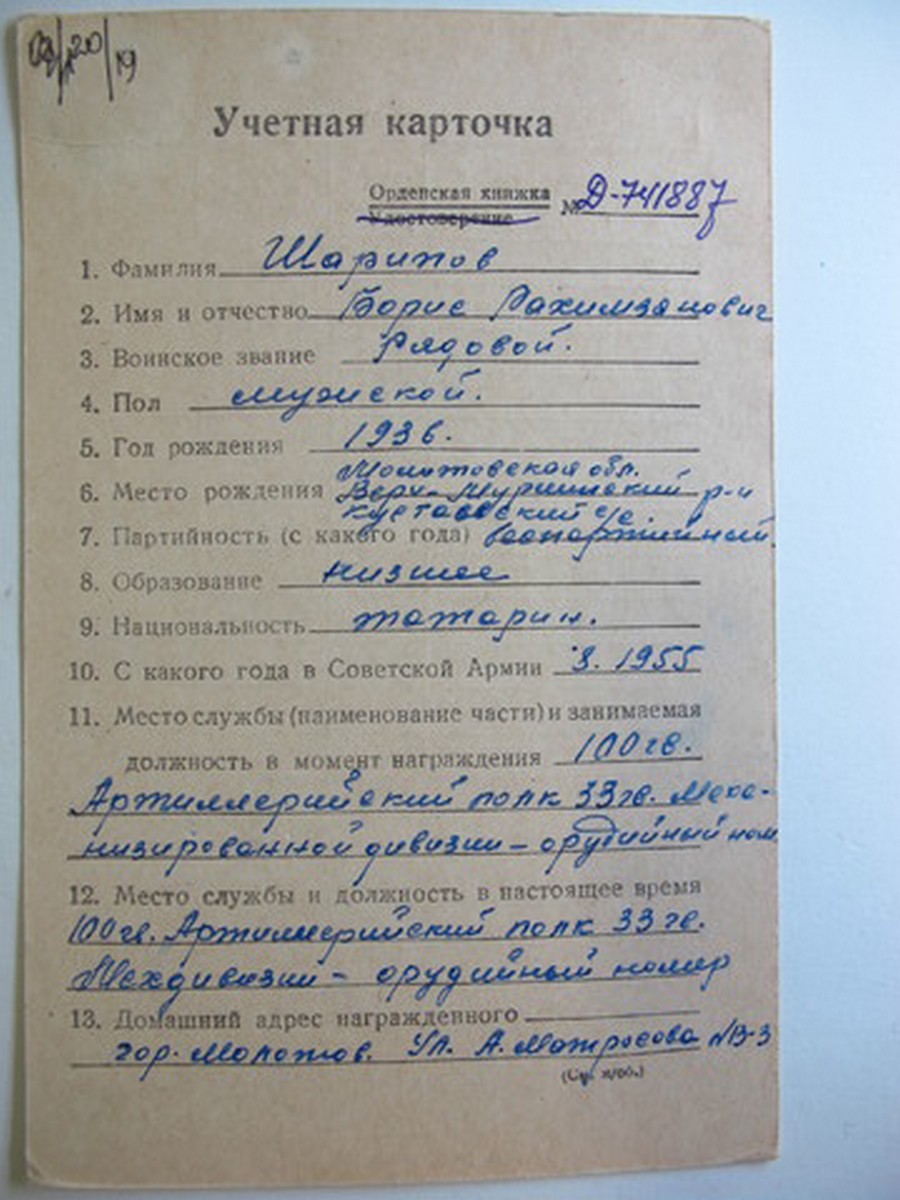 Учетная карточка
Орденская книжка
Удостоверение № Д-741887
1. Фамилия Шарипов
2. Имя и отчество Борис Рахимзанович
3. Воинское звание Рядовой.
4. Пол мужской.
5. Год рождения 1936.
Молотовская обл.
6. Место рождения Верх-Муллинский р-н
7. Партийность (с какого года) беспартийный.
8. Образование низшее
9. Национальность татарин.
10. С какого года в Советской Армии 8. 1955
11. Место службы (наименование части) и занимаемая
должность в момент награждения 100 гв.
Артиллерийский полк 33 гв. Меха-
низированной дивизии – орудийный ном.
12. Место службы и должность в настоящее время
100 гв. Артиллерийский полк 33 гв.
Мехдивизии – орудийный номер
13. Домашний адрес награжденного
гор. Молотов. Ул. А. Матросова
(См. н/об.)